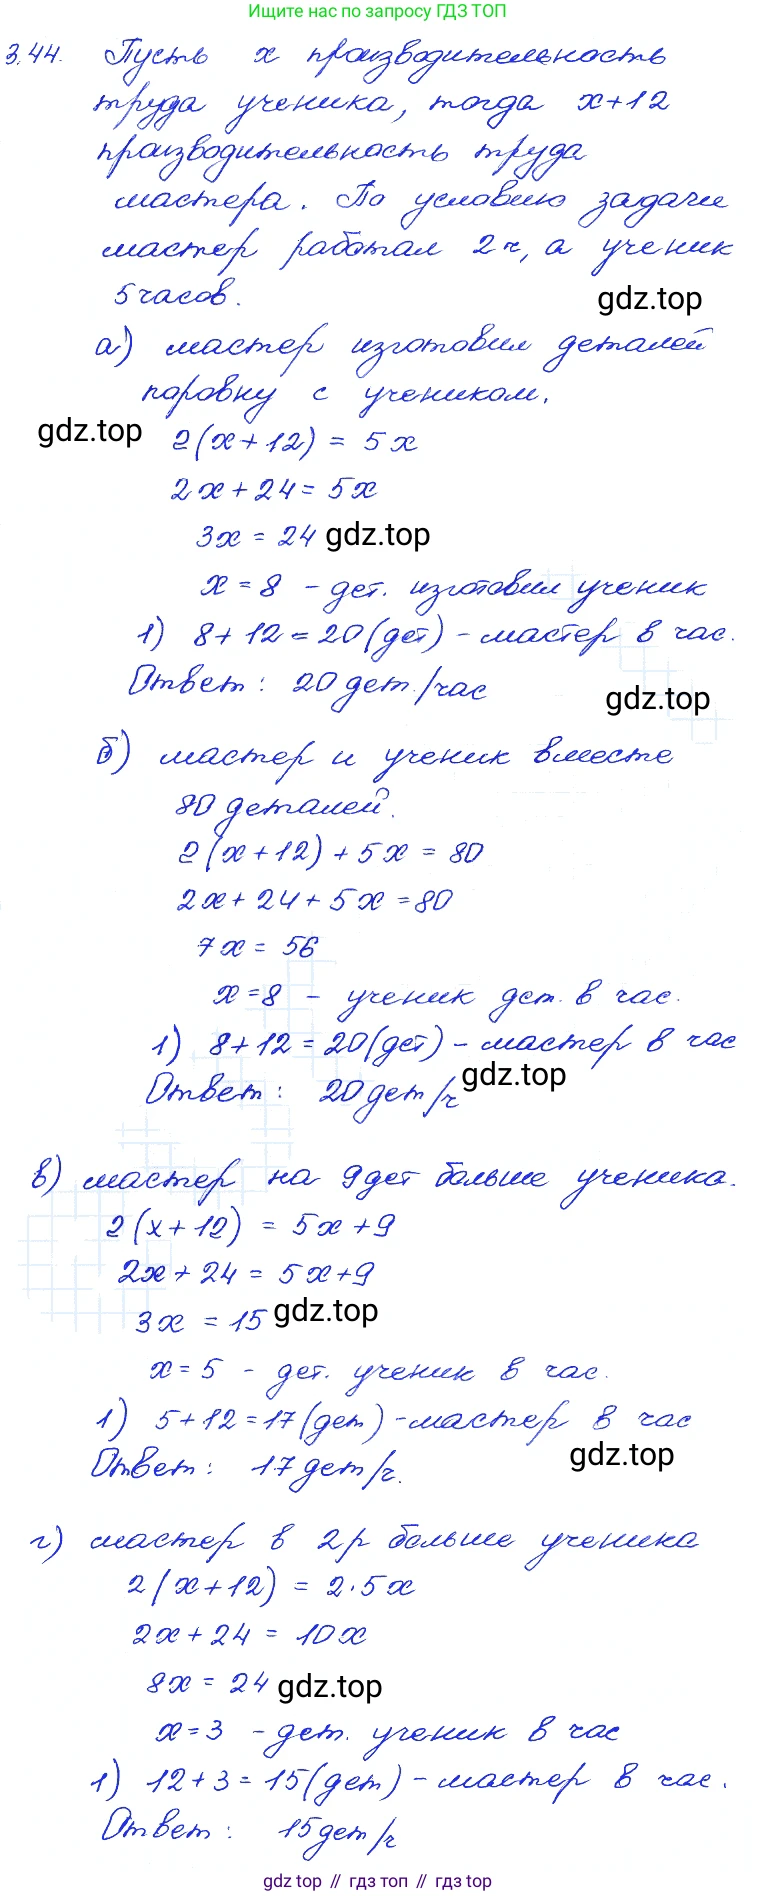 Ищите нас по запросу ГДЗ ТОП
3.44. Пусть x производительность
труда ученика, тогда x+12
производительность труда
мастера. По условию задачи
мастер работал 2 ч, а ученик
5 часов.
gdz.top
а) мастер изготовил деталей
поровну с учеником.
gdz.top
2(x+12) = 5x
2x+24 = 5x
3x = 24 gdz.top
x = 8 - дет. изготовил ученик
1) 8+12=20(дет) - мастер в час.
Ответ: 20 дет./час
gdz.top
б) мастер и ученик вместе
80 деталей.
2(x+12)+5x = 80
2x+24+5x = 80
7x = 56
x=8 - ученик дет. в час.
1) 8+12=20(дет) - мастер в час
gdz.top
Ответ: 20 дет/ч
в) мастер на 9 дет больше ученика.
2(x+12) = 5x+9
2x+24 = 5x+9
3x = 15 gdz.top
x=5 - дет. ученик в час.
1) 5+12=17(дет) - мастер в час
gdz.top
Ответ: 17 дет/ч.
г) мастер в 2р больше ученика
2(x+12) = 2·5x
2x+24 = 10x
8x = 24 gdz.top
x=3 - дет. ученик в час
1) 12+3=15(дет) - мастер в час.
Ответ: 15 дет/ч
gdz top // гдз топ // gdz top